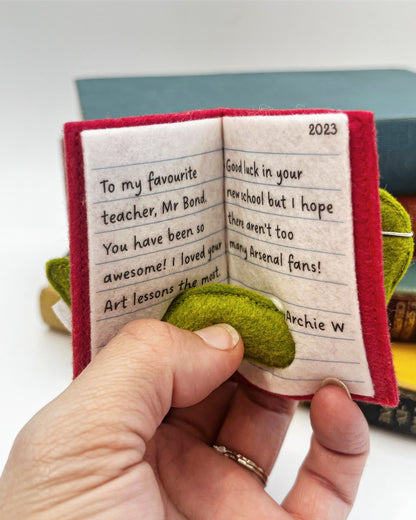 To my favourite
teacher, Mr Bond.
You have been so
awesome! I loved your
Art lessons the most.
2023
Good luck in your
new school but I hope
there aren't too
many Arsenal fans!
Archie W